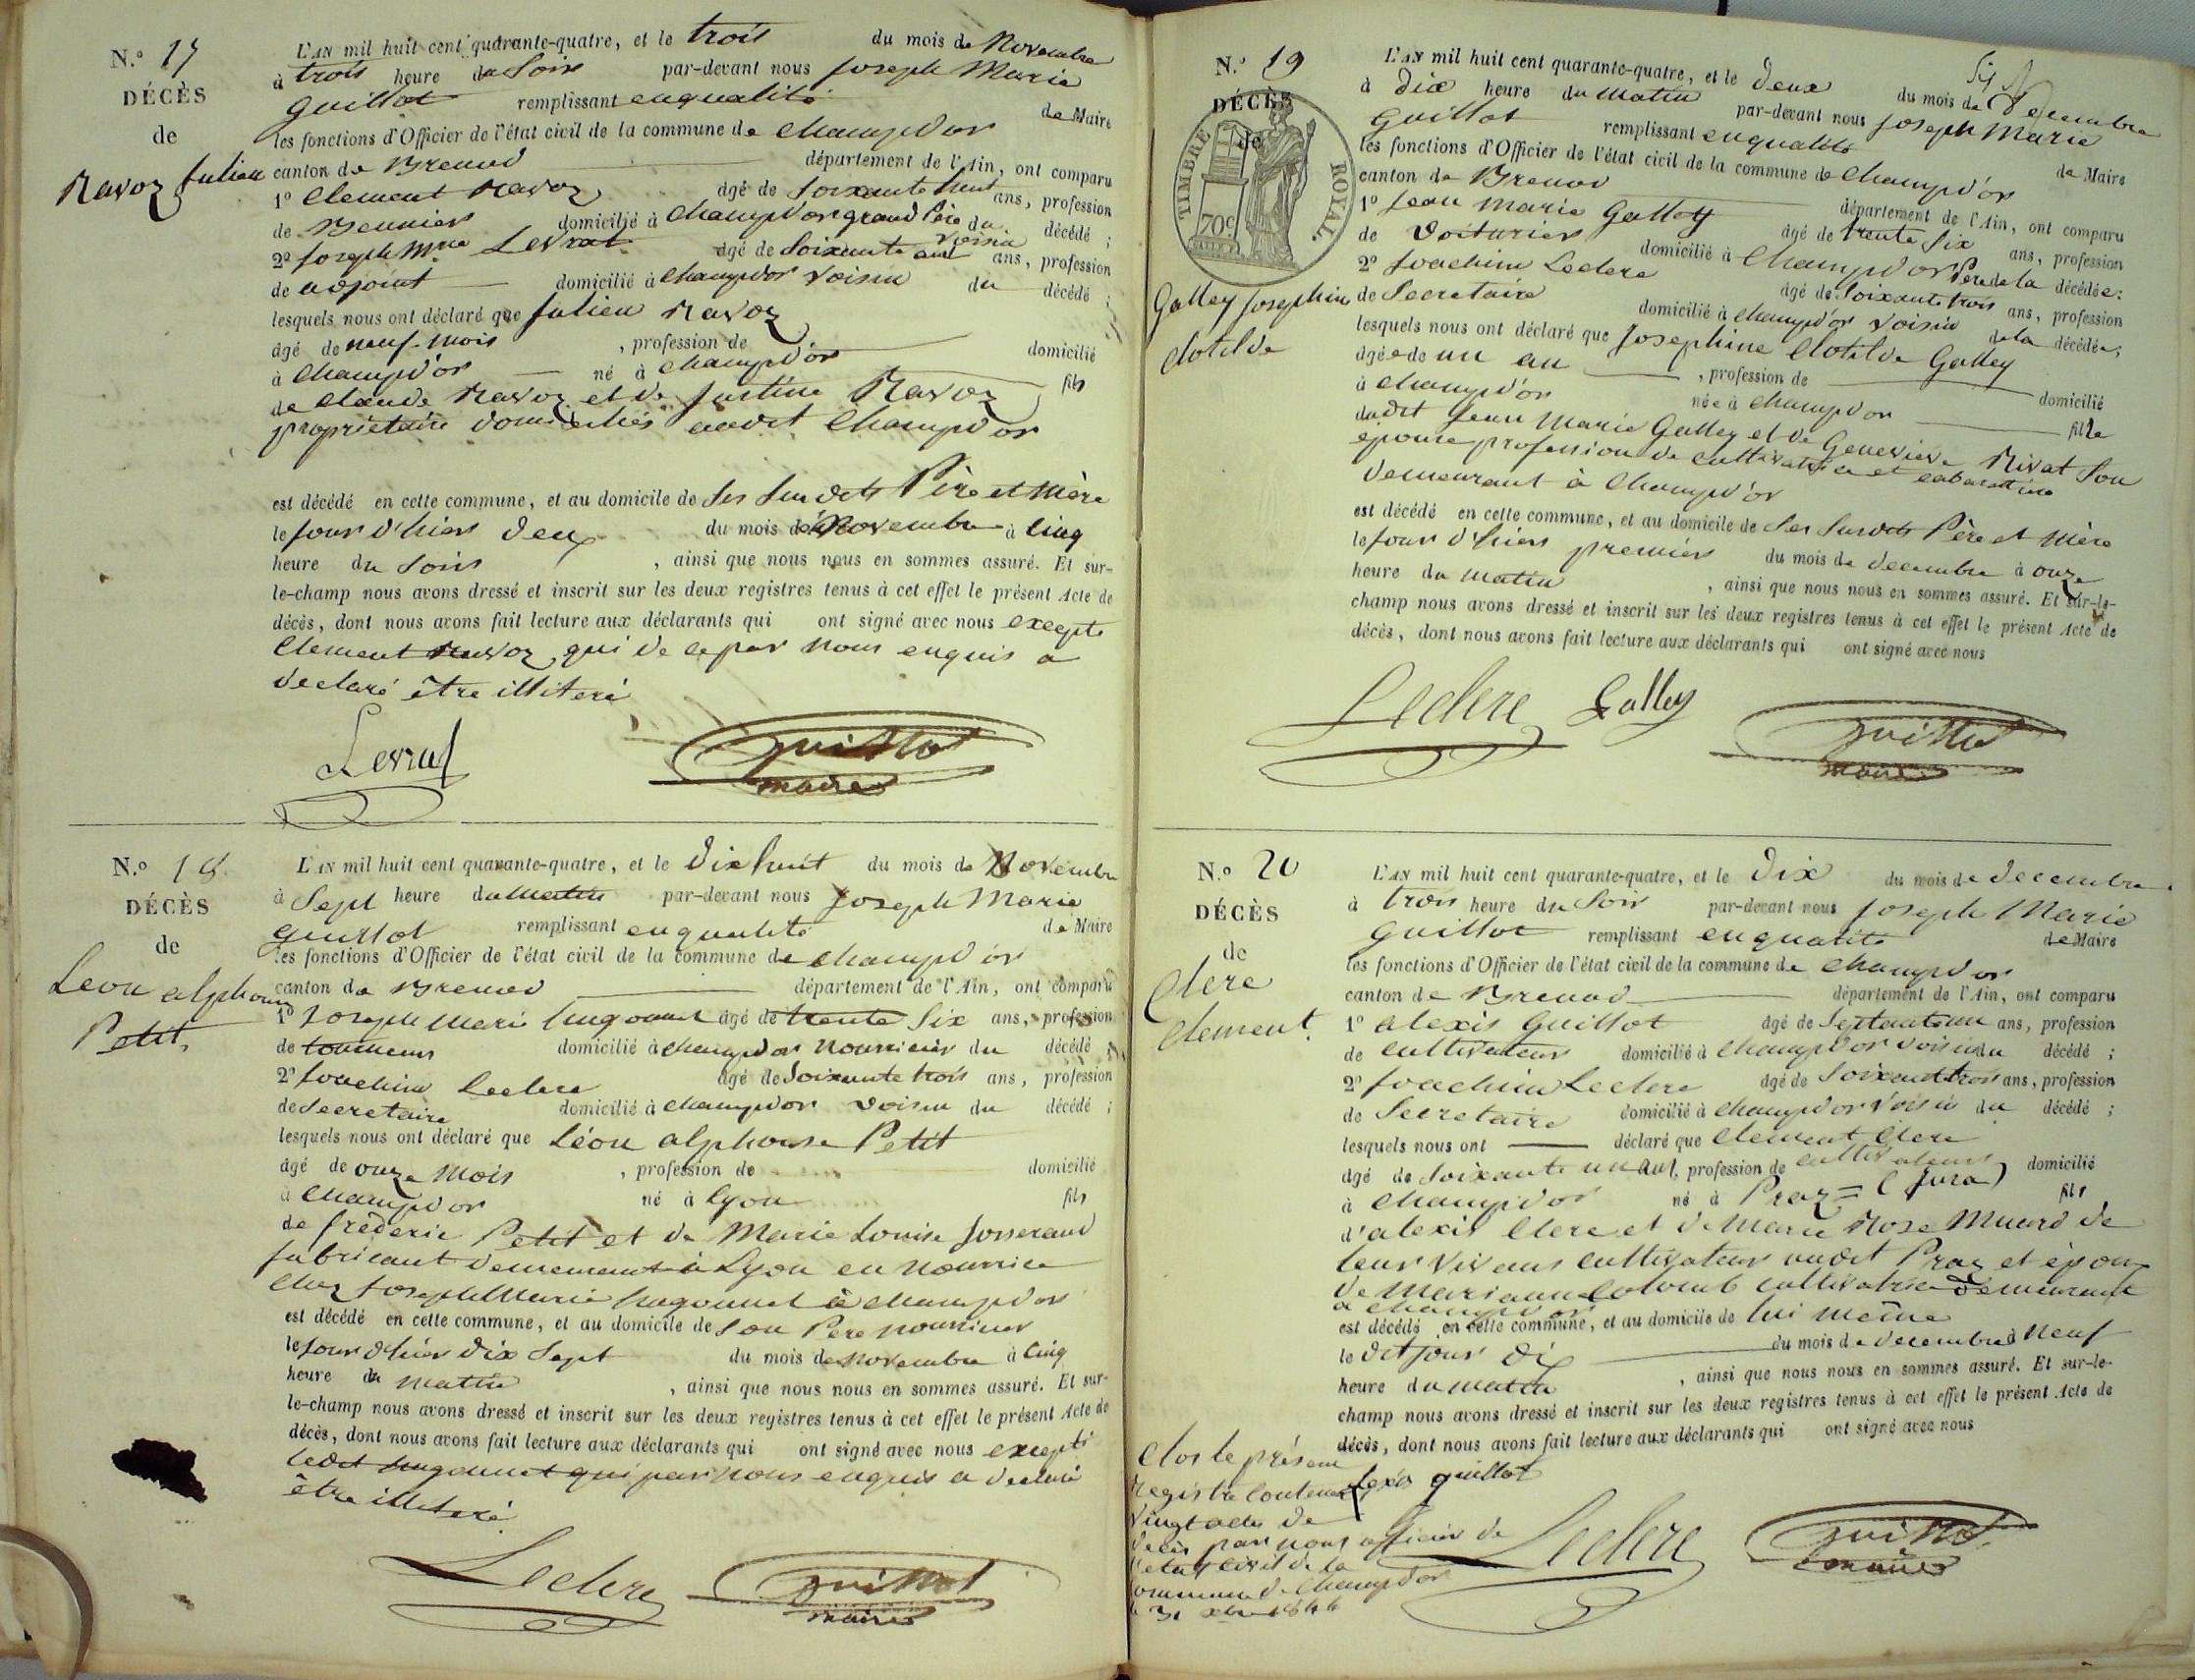 N.º 17
DÉCÈS
de
Ravoz Julien
L'AN mil huit cent quarante-quatre, et le trois du mois de Novembre
à trois heure du Soir par-devant nous Joseph Marie
Guillot remplissant en qualité de Maire
les fonctions d'Officier de l'état civil de la commune de Champd'or
canton de Brenod département de l'Ain, ont comparu
1º Clement Ravoz âgé de Soixante huit ans, profession
de domicilié à Champd'or grand Père du décédé ;
2º Joseph Mrie Levrat âgé de Soixante ans, profession
de adjoint domicilié à Champd'or voisin du décédé ;
lesquels nous ont déclaré que Julien Ravoz
âgé de neuf mois , profession de domicilié
à Champd'or né à Champd'or fils
de Claude Ravoz et de Justine Ravoz
propriétaire domiciliés audit Champd'or
est décédé en cette commune, et au domicile de Ses Susdits Père et Mère
le Jour d'hier deux du mois de Novembre à Cinq
heure du Soir , ainsi que nous nous en sommes assuré. Et sur-
le-champ nous avons dressé et inscrit sur les deux registres tenus à cet effet le présent Acte de
décès, dont nous avons fait lecture aux déclarants qui ont signé avec nous excepté
Clement Ravoz qui de ce par nous enquis a
declaré être illiteré
Levrat Guillot
maire
N.º 18
DÉCÈS
de
Leon alphonse
Petit
L'AN mil huit cent quarante-quatre, et le Dix huit du mois de Novembre
à Sept heure du Matin par-devant nous Joseph Marie
Guillot remplissant en qualité de Maire
les fonctions d'Officier de l'état civil de la commune de Champd'or
canton de Brenod département de l'Ain, ont comparu
1º Joseph Marie hugonnet âgé de trente Six ans, profession
de tourneur domicilié à Champd'or Nourricier du décédé ;
2º Joachim Leclerc âgé de Soixante trois ans, profession
de Secretaire domicilié à Champd'or voisin du décédé ;
lesquels nous ont déclaré que Léon alphonse Petit
âgé de onze Mois , profession de domicilié
à Champd'or né à Lyon fils
de frédéric Petit et de Marie Louise Josserand
fabricant demeurant à Lyon en nourrice
chez Joseph Marie hugonnet à Champd'or
est décédé en cette commune, et au domicile de Son Pere nourricier
le Jour d'hier Dix Sept du mois de Novembre à Cinq
heure du matin , ainsi que nous nous en sommes assuré. Et sur-
le-champ nous avons dressé et inscrit sur les deux registres tenus à cet effet le présent Acte de
décès, dont nous avons fait lecture aux déclarants qui ont signé avec nous excepté
ledit hugonnet qui par nous enquis a declaré
être illiteré
Leclerc Guillot
maire
N.º 19
DÉCÈS
de
TIMBRE ROYAL
70c
Galley Josephine
Clotilde
L'AN mil huit cent quarante-quatre, et le Deux du mois de Decembre
à Dix heure du Matin par-devant nous Joseph Marie
Guillot remplissant en qualité de Maire
les fonctions d'Officier de l'état civil de la commune de Champd'or
canton de Brenod département de l'Ain, ont comparu
1º Jean Marie Galley âgé de trente Six ans, profession
de Voiturier domicilié à Champd'or Père de la décédée ;
2º Joachim Leclerc âgé de Soixante trois ans, profession
de Secretaire domicilié à Champd'or voisin de la décédée ;
lesquels nous ont déclaré que Josephine Clotilde Galley
âgée de un an , profession de domicilié
à Champd'or née à Champd'or fille
dudit Jean Marie Galley et de Genevieve Rivat Son
épouse profession de cultivatrice et cabaretière
demeurant à Champd'or
est décédé en cette commune, et au domicile de Ses Susdits Père et Mère
le Jour d'hier premier du mois de Decembre à onze
heure du matin , ainsi que nous nous en sommes assuré. Et sur-le-
champ nous avons dressé et inscrit sur les deux registres tenus à cet effet le présent Acte de
décès, dont nous avons fait lecture aux déclarants qui ont signé avec nous
Leclerc Galley Guillot
maire
N.º 20
DÉCÈS
de
Clerc
Clement
L'AN mil huit cent quarante-quatre, et le Dix du mois de Decembre
à trois heure du Soir par-devant nous Joseph Marie
Guillot remplissant en qualité de Maire
les fonctions d'Officier de l'état civil de la commune de Champd'or
canton de Brenod département de l'Ain, ont comparu
1º alexis Guillot âgé de Septante un ans, profession
de Cultivateur domicilié à Champd'or voisin du décédé ;
2º Joachim Leclerc âgé de Soixante trois ans, profession
de Secretaire domicilié à Champd'or voisin du décédé ;
lesquels nous ont déclaré que Clement Clerc
âgé de Soixante un ans, profession de cultivateur domicilié
à Champd'or né à Praz = (Jura) fils
d'alexis Clerc et de Marie Rose Muard de
leur vivans cultivateur audit Praz et époux
de Mariane Colomb cultivatrice demeurant
à Champd'or
est décédé en cette commune, et au domicile de lui même
le dit Jour dix du mois de Decembre à Neuf
heure du matin , ainsi que nous nous en sommes assuré. Et sur-le-
champ nous avons dressé et inscrit sur les deux registres tenus à cet effet le présent Acte de
décès, dont nous avons fait lecture aux déclarants qui ont signé avec nous
Clos le présent
registre contenant
vingt actes de
décès par nous officier de
l'etat civil de la
commune de Champd'or
le 31 xbre 1844
alexis guillot
Leclerc Guillot
maire